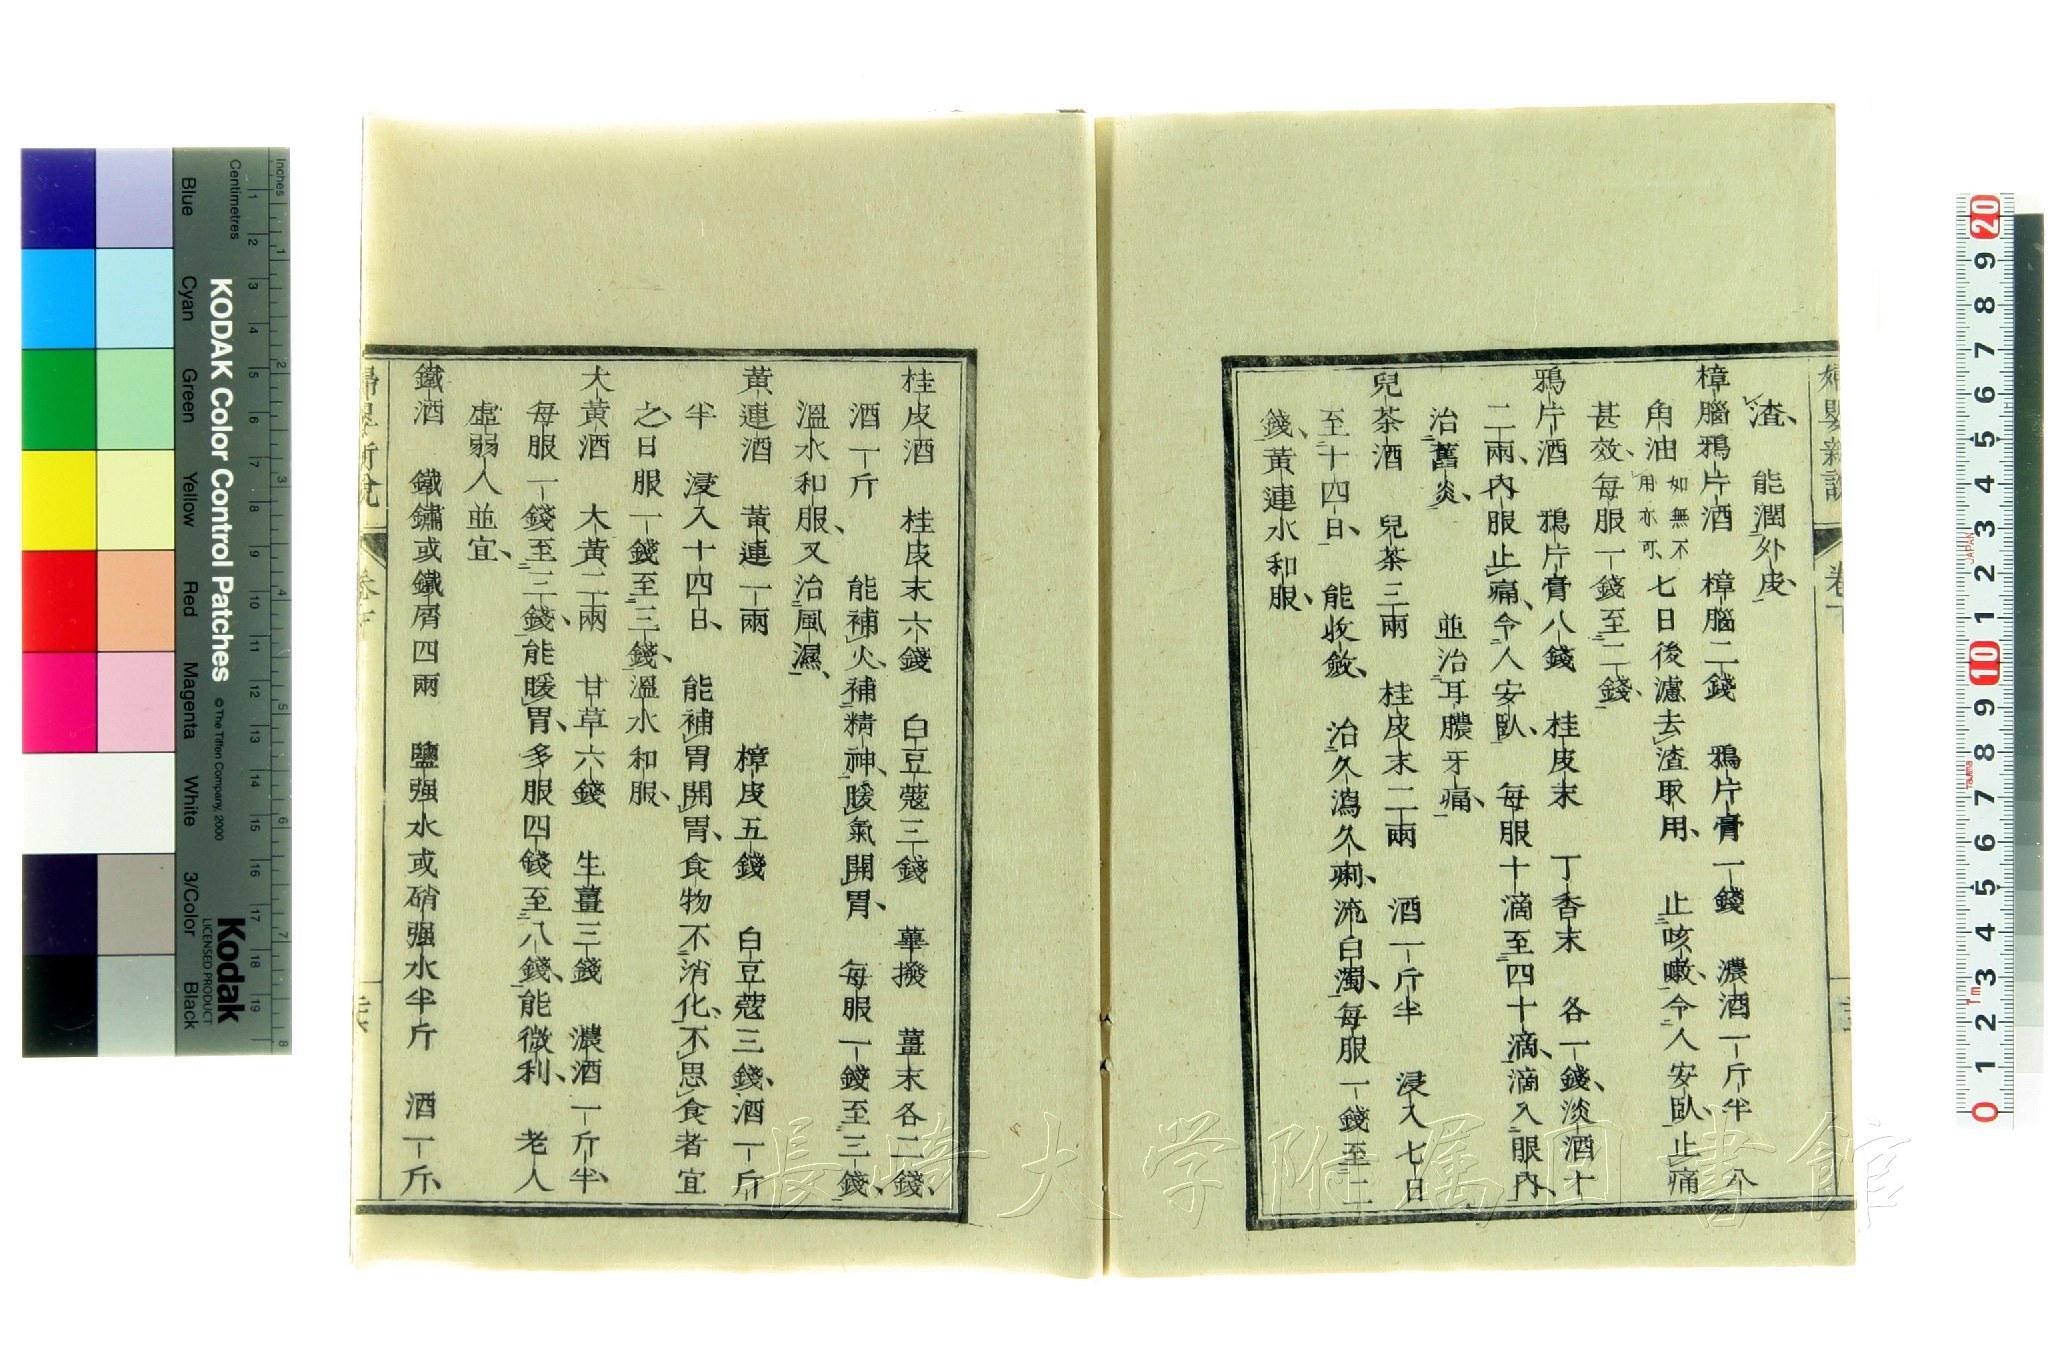 渣、 能潤外皮、
樟腦鴉片酒 樟腦二錢 鴉片膏一錢 濃酒一斤半 八
角油 如無不用亦可、 七日後濾去渣取用、 止咳嗽、令人安臥、止痛
甚效、每服一錢至二錢、
鴉片酒 鴉片膏八錢 桂皮末 丁香末 各一錢、淡酒十
二兩、內服止痛、令人安臥、 每服十滴至四十滴、滴入眼內、
治舊炎、 並治耳膿牙痛、
兒茶酒 兒茶三兩 桂皮末二兩 酒一斤半 浸入七日
至十四日、 能收斂、 治久瀉久痢、流白濁、每服一錢至二
錢、黃連水和服、
桂皮酒 桂皮末六錢 白豆蔻三錢 蓽撥 薑末各二錢、
酒一斤 能補火、補精神、暖氣開胃、 每服一錢至三錢、
溫水和服、又治風濕、
黃連酒 黃連一兩 樟皮五錢 白豆蔻三錢、酒一斤
半 浸入十四日、 能補胃開胃、食物不消化、不思食者宜
之、日服一錢至三錢、溫水和服、
大黃酒 大黃二兩 甘草六錢 生薑三錢 濃酒一斤半、
每服一錢至三錢、能暖胃、多服四錢至八錢、能微利、 老人
虛弱人並宜、
鐵酒 鐵鏽或鐵屑四兩 鹽强水或硝强水半斤 酒一斤、
長崎大学附属図書館
KODAK Color Control Patches
© The Tiffen Company, 2000
Kodak
LICENSED PRODUCT
Inches
Centimetres
Blue Cyan Green Yellow Red Magenta White 3/Color Black